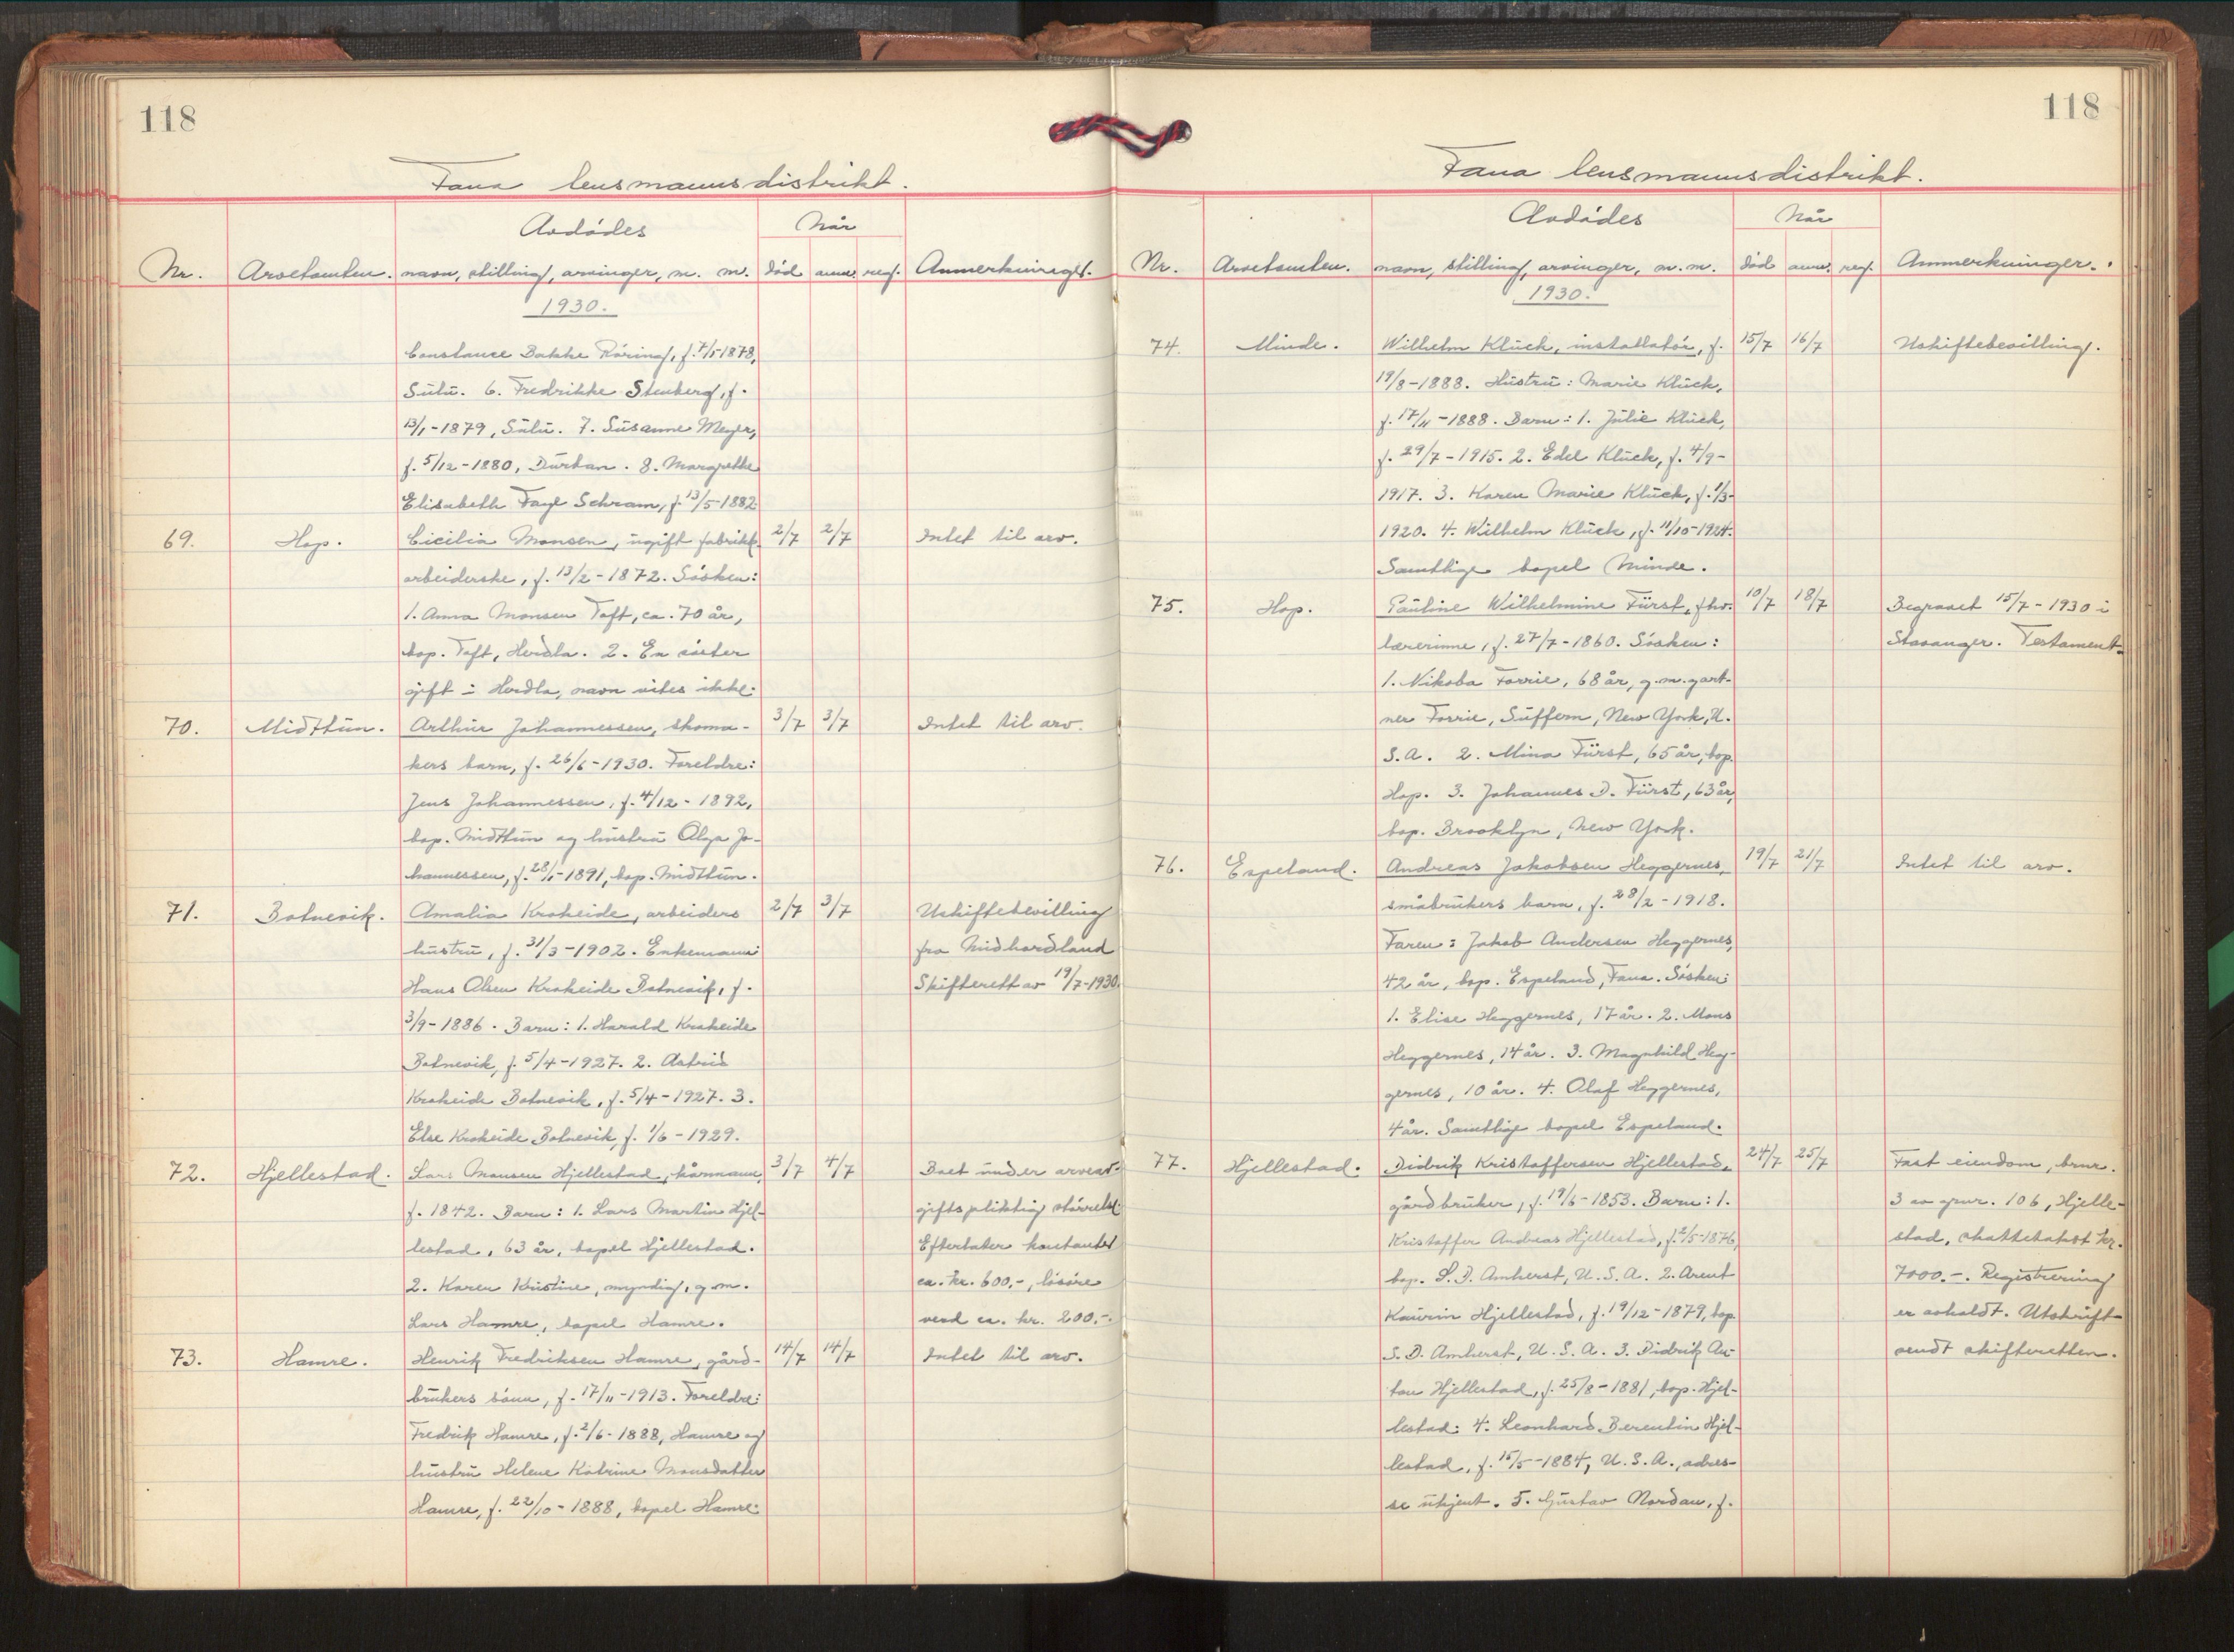 118
Fana lensmannsdistrikt.
Avdødes
Når
Nr. Arvetomten. navn, stilling, arvinger, m. m. død anm. reg. Anmerkninger.
1930.
Constance Bakke Röring, f. 7/5 1878,
Sulu. 6. Fredrikke Stenberg, f.
13/1-1879, Sulu. 7. Susanne Meyer,
f. 5/12-1880, Durban. 8. Margrethe
Elisabeth Faye Schram, f. 13/5-1882
69. Hop. Cicilia Monsen, ugift fabrikk- 2/7 2/7 Intet til arv.
arbeiderske, f. 13/2-1872. Søsken:
1. Anna Monsen Toft, ca. 70 år,
bop. Toft, Herdla. 2. En søster
gift i Herdla, navn vites ikke.
70. Midttun. Arthur Johannessen, skoma- 3/7 3/7 Intet til arv.
kers barn, f. 26/6-1930. Foreldre:
Jens Johannessen, f. 4/12-1892,
bop. Midttun og hustru Olga Jo-
hannessen, f. 28/1-1891, bop. Midttun.
71. Botnevik. Amalia Krokeide, arbeiders 2/7 3/7 Uskiftebevilling
hustru, f. 31/3-1902. Enkemann: fra Midhordland
Hans Olsen Krokeide Botnevik, f. Skifterett av 19/7-1930.
3/9-1886. Barn: 1. Harald Krokeide
Botnevik, f. 5/4-1927. 2. Astrid
Krokeide Botnevik, f. 5/4-1927. 3.
Else Krokeide Botnevik, f. 1/6-1929.
72. Hjellestad. Lars Monsen Hjellestad, kårmann, 3/7 4/7 Boet under arveav-
f. 1842. Barn: 1. Lars Martin Hjel- giftspliktig størrelse.
lestad, 63 år, bopel Hjellestad. Efterlater kontanter
2. Karen Kristine, myndig, g.m. ca. kr. 600,-, løsøre
Lars Hamre, bopel Hamre. verd ca. kr. 200.-.
73. Hamre. Henrik Fredriksen Hamre, gård- 14/7 14/7 Intet til arv.
brukers sønn, f. 17/11-1913. Foreldre:
Fredrik Hamre, f. 2/6-1888, Hamre og
hustru Helene Katrine Monsdatter
Hamre, f. 22/10-1888, bopel Hamre.
118
Fana lensmannsdistrikt.
Avdødes
Når
Nr. Arvetomten. navn, stilling, arvinger, m. m. død anm. reg. Anmerkninger.
1930.
74. Minde. Wilhelm Klück, installatør, f. 15/7 16/7 Uskiftebevilling.
19/8-1888. Hustru: Marie Klück,
f. 17/11-1888. Barn: 1. Julie Klück,
f. 29/7-1915. 2. Edel Klück, f. 4/9-
1917. 3. Karen Marie Klück, f. 1/3-
1920. 4. Wilhelm Klück, f. 11/10-1924.
Samtlige bopel Minde.
75. Hop. Pauline Wilhelmine Fürst, fhv. 10/7 18/7 Begravet 15/7-1930 i
lærerinne, f. 27/7-1860. Søsken: Stavanger. Testament.
1. Nikoba Forrie, 68 år, g.m. gart-
ner Forrie, Suffern, New York, U.
S.A. 2. Mina Fürst, 65 år, bop.
Hop. 3. Johannes D. Fürst, 63 år,
bop. Brooklyn, New York.
76. Espeland. Andreas Jakobsen Heggernes, 19/7 21/7 Intet til arv.
småbrukers barn, f. 28/2-1918.
Faren: Jakob Andersen Heggernes,
42 år, bop. Espeland, Fana. Søsken:
1. Elise Heggernes, 17 år. 2. Mons
Heggernes, 14 år. 3. Magnhild Heg-
gernes, 10 år. 4. Olaf Heggernes,
4 år. Samtlige bopel Espeland.
77. Hjellestad. Didrik Kristoffersen Hjellestad, 24/7 25/7 Fast eiendom, brnr.
gårdbruker, f. 19/6-1853. Barn: 1. 3 av gnr. 106, Hjelle-
Kristoffer Andreas Hjellestad, f. 2/5-1876, stad, skattetakst kr.
bop. S.D. Amherst, U.S.A. 2. Arent 7000.-. Registrering
Kaurin Hjellestad, f. 19/12-1879, bop. er avholdt. Utskrift
S.D. Amherst, U.S.A. 3. Didrik An- sendt skifteretten.
ton Hjellestad, f. 25/8-1881, bop. Hjel-
lestad. 4. Leonhard Berentin Hjel-
lestad, f. 15/5-1884, U.S.A., adres-
se ukjent. 5. Gustav Nordan, f.